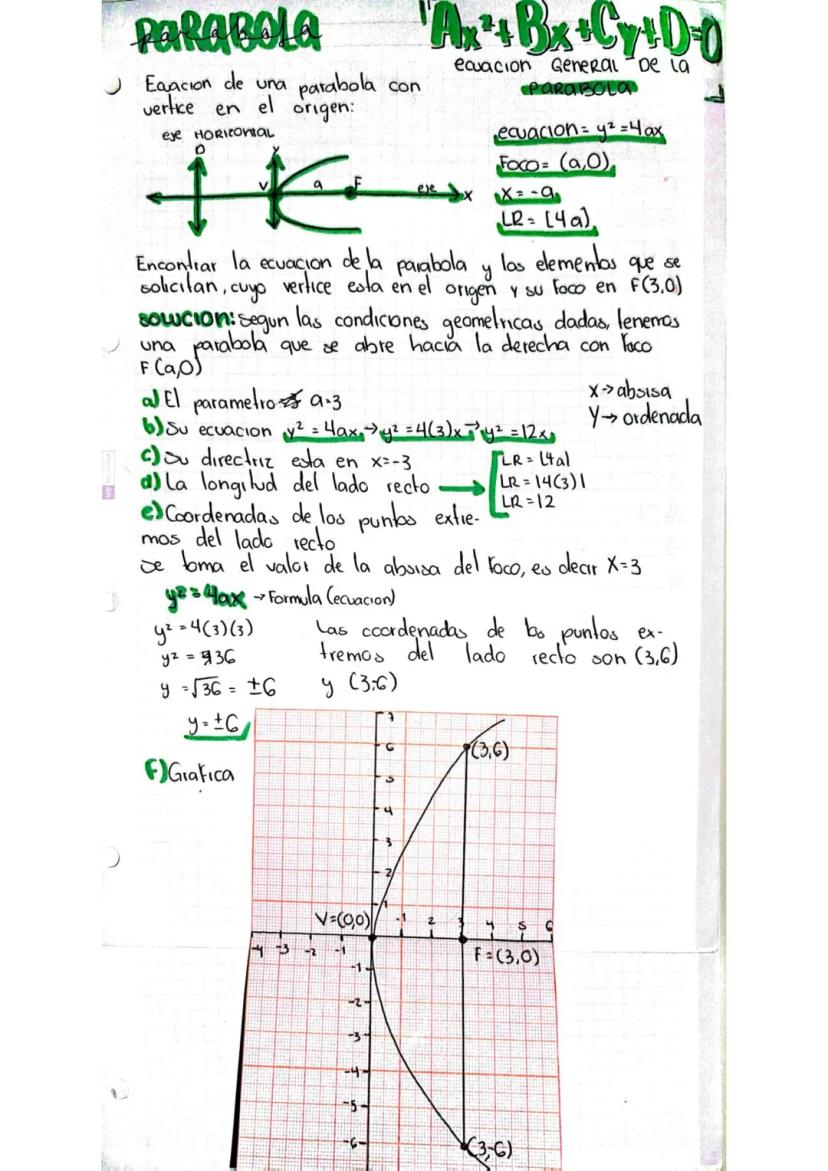 PARABOLA
Ax²+Bx+Cy+D=0
ecuacion General De la
PARABOLA
Eqacion de una parabola con
vertice en el origen:
eje HORIZONTAL
D
Y
V
a
F
eje
x
ecuacion= y²=4ax
Foco= (a,0)
x=-a
LR= [4a]
Encontrar la ecuacion de la parabola y los elementos que se
solicitan, cuyo vertice esta en el origen y su Foco en F(3,0)
SOLUCION: segun las condiciones geometricas dadas, tenemos
una parabola que se abre hacia la derecha con Foco
F(a,0)
a) El parametro a=3
x→absisa
Y→ordenada
b) Su ecuacion y²=4ax,→y²=4(3)x→y²=12x
c) Su directriz esta en x=-3
d) La longitud del lado recto →
LR = |4a|
LR = |4(3)|
LR = 12
e) Coordenadas de los puntos extre-
mos del lado recto
se toma el valor de la absisa del Foco, es decir X=3
y²=4ax →Formula (ecuacion)
y² = 4(3)(3)
y² = 36
y =√36 = ±6
y=±6
Las coordenadas de los puntos ex-
tremos del lado recto son (3,6)
y (3,-6)
F) Grafica
7
6
5
4
3
2
1
(3,6)
V=(0,0)
-4 -3 -2 -1
1 2 3 4 5 6
F=(3,0)
-1
-2
-3
-4
-5
-6
(3,-6)